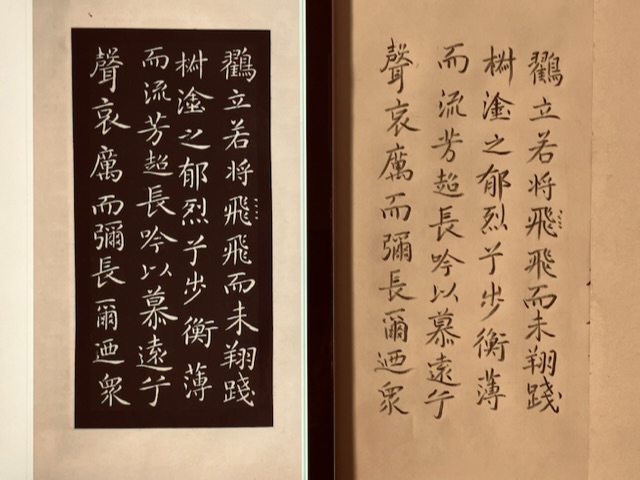 鶴立若將飛飛而未翔踐
椒塗之郁烈兮步衡薄
而流芳超長吟以慕遠兮
聲哀厲而彌長爾迺衆
鶴立若將飛飛而未翔踐
椒塗之郁烈兮步衡薄
而流芳超長吟以慕遠兮
聲哀厲而彌長爾迺衆